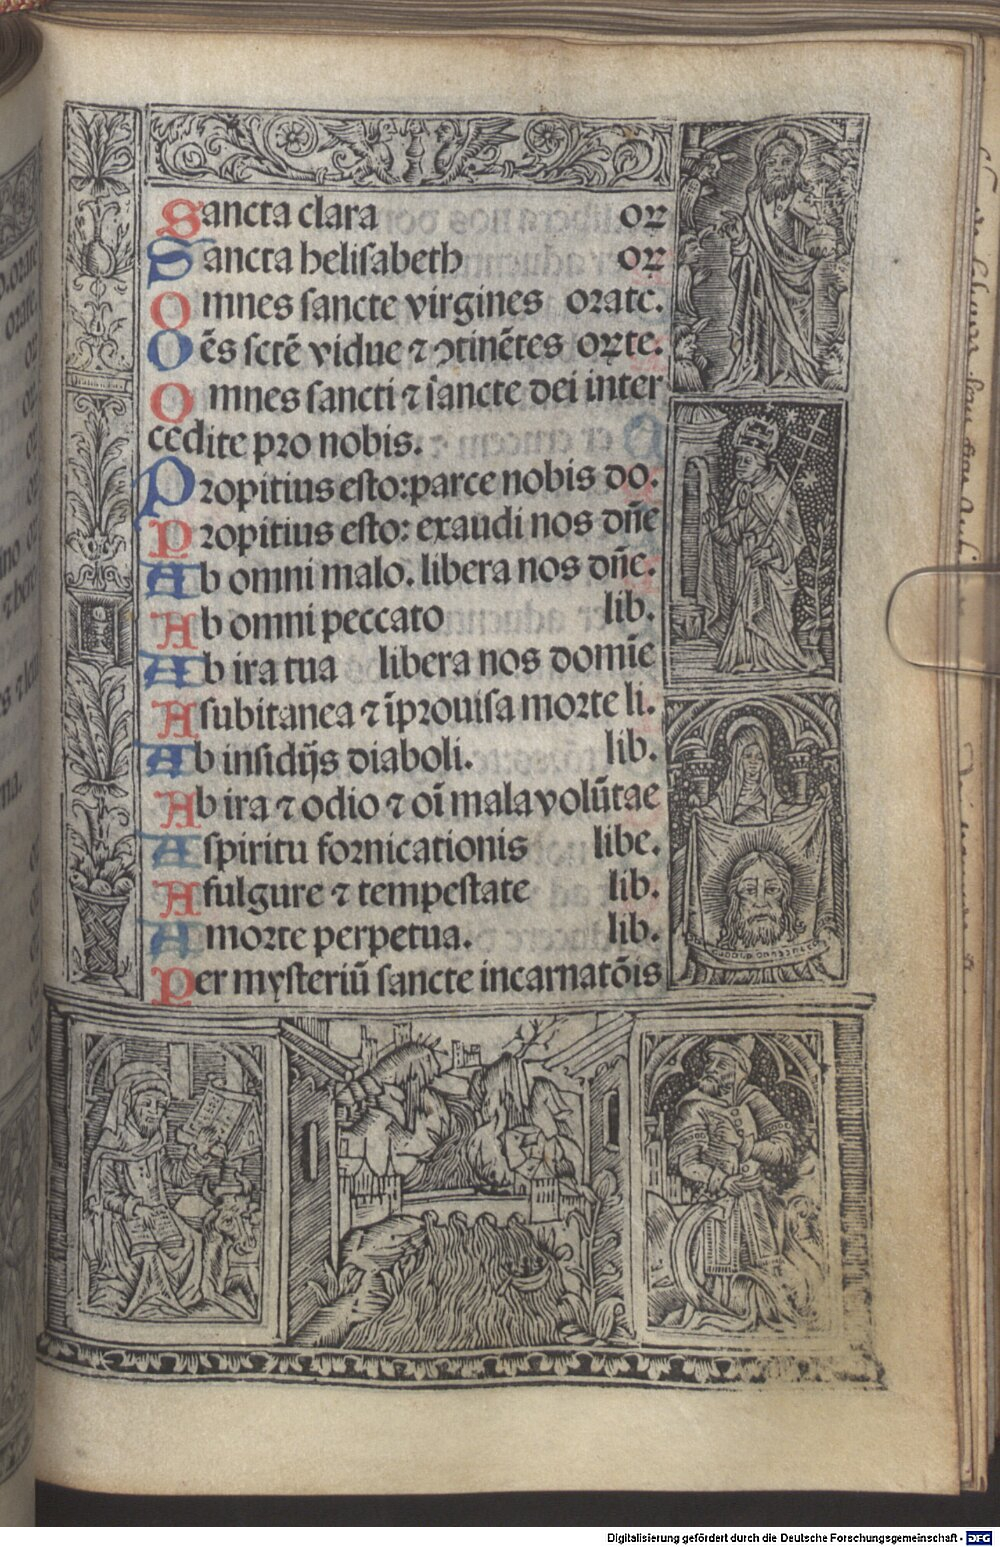 Sancta clara orꝛ
Sancta helisabeth orꝛ
Omnes sancte virgines orate.
Oēs sctē vidue ⁊ ↄtinētes orꝛte.
Omnes sancti ⁊ sancte dei inter
cedite pro nobis.
Propitius esto:parce nobis do.
Propitius esto: exaudi nos dn̄e
Ab omni malo. libera nos dn̄e.
Ab omni peccato lib.
Ab ira tua libera nos domīe
A subitanea ⁊ īprouisa morte li.
Ab insidijs diaboli. lib.
Ab ira ⁊ odio ⁊ oī mala volūtae
A spiritu fornicationis libe.
A fulgure ⁊ tempestate lib.
A morte perpetua. lib.
Per mysteriū sancte incarnatōis
Digitalisierung gefördert durch die Deutsche Forschungsgemeinschaft - DFG